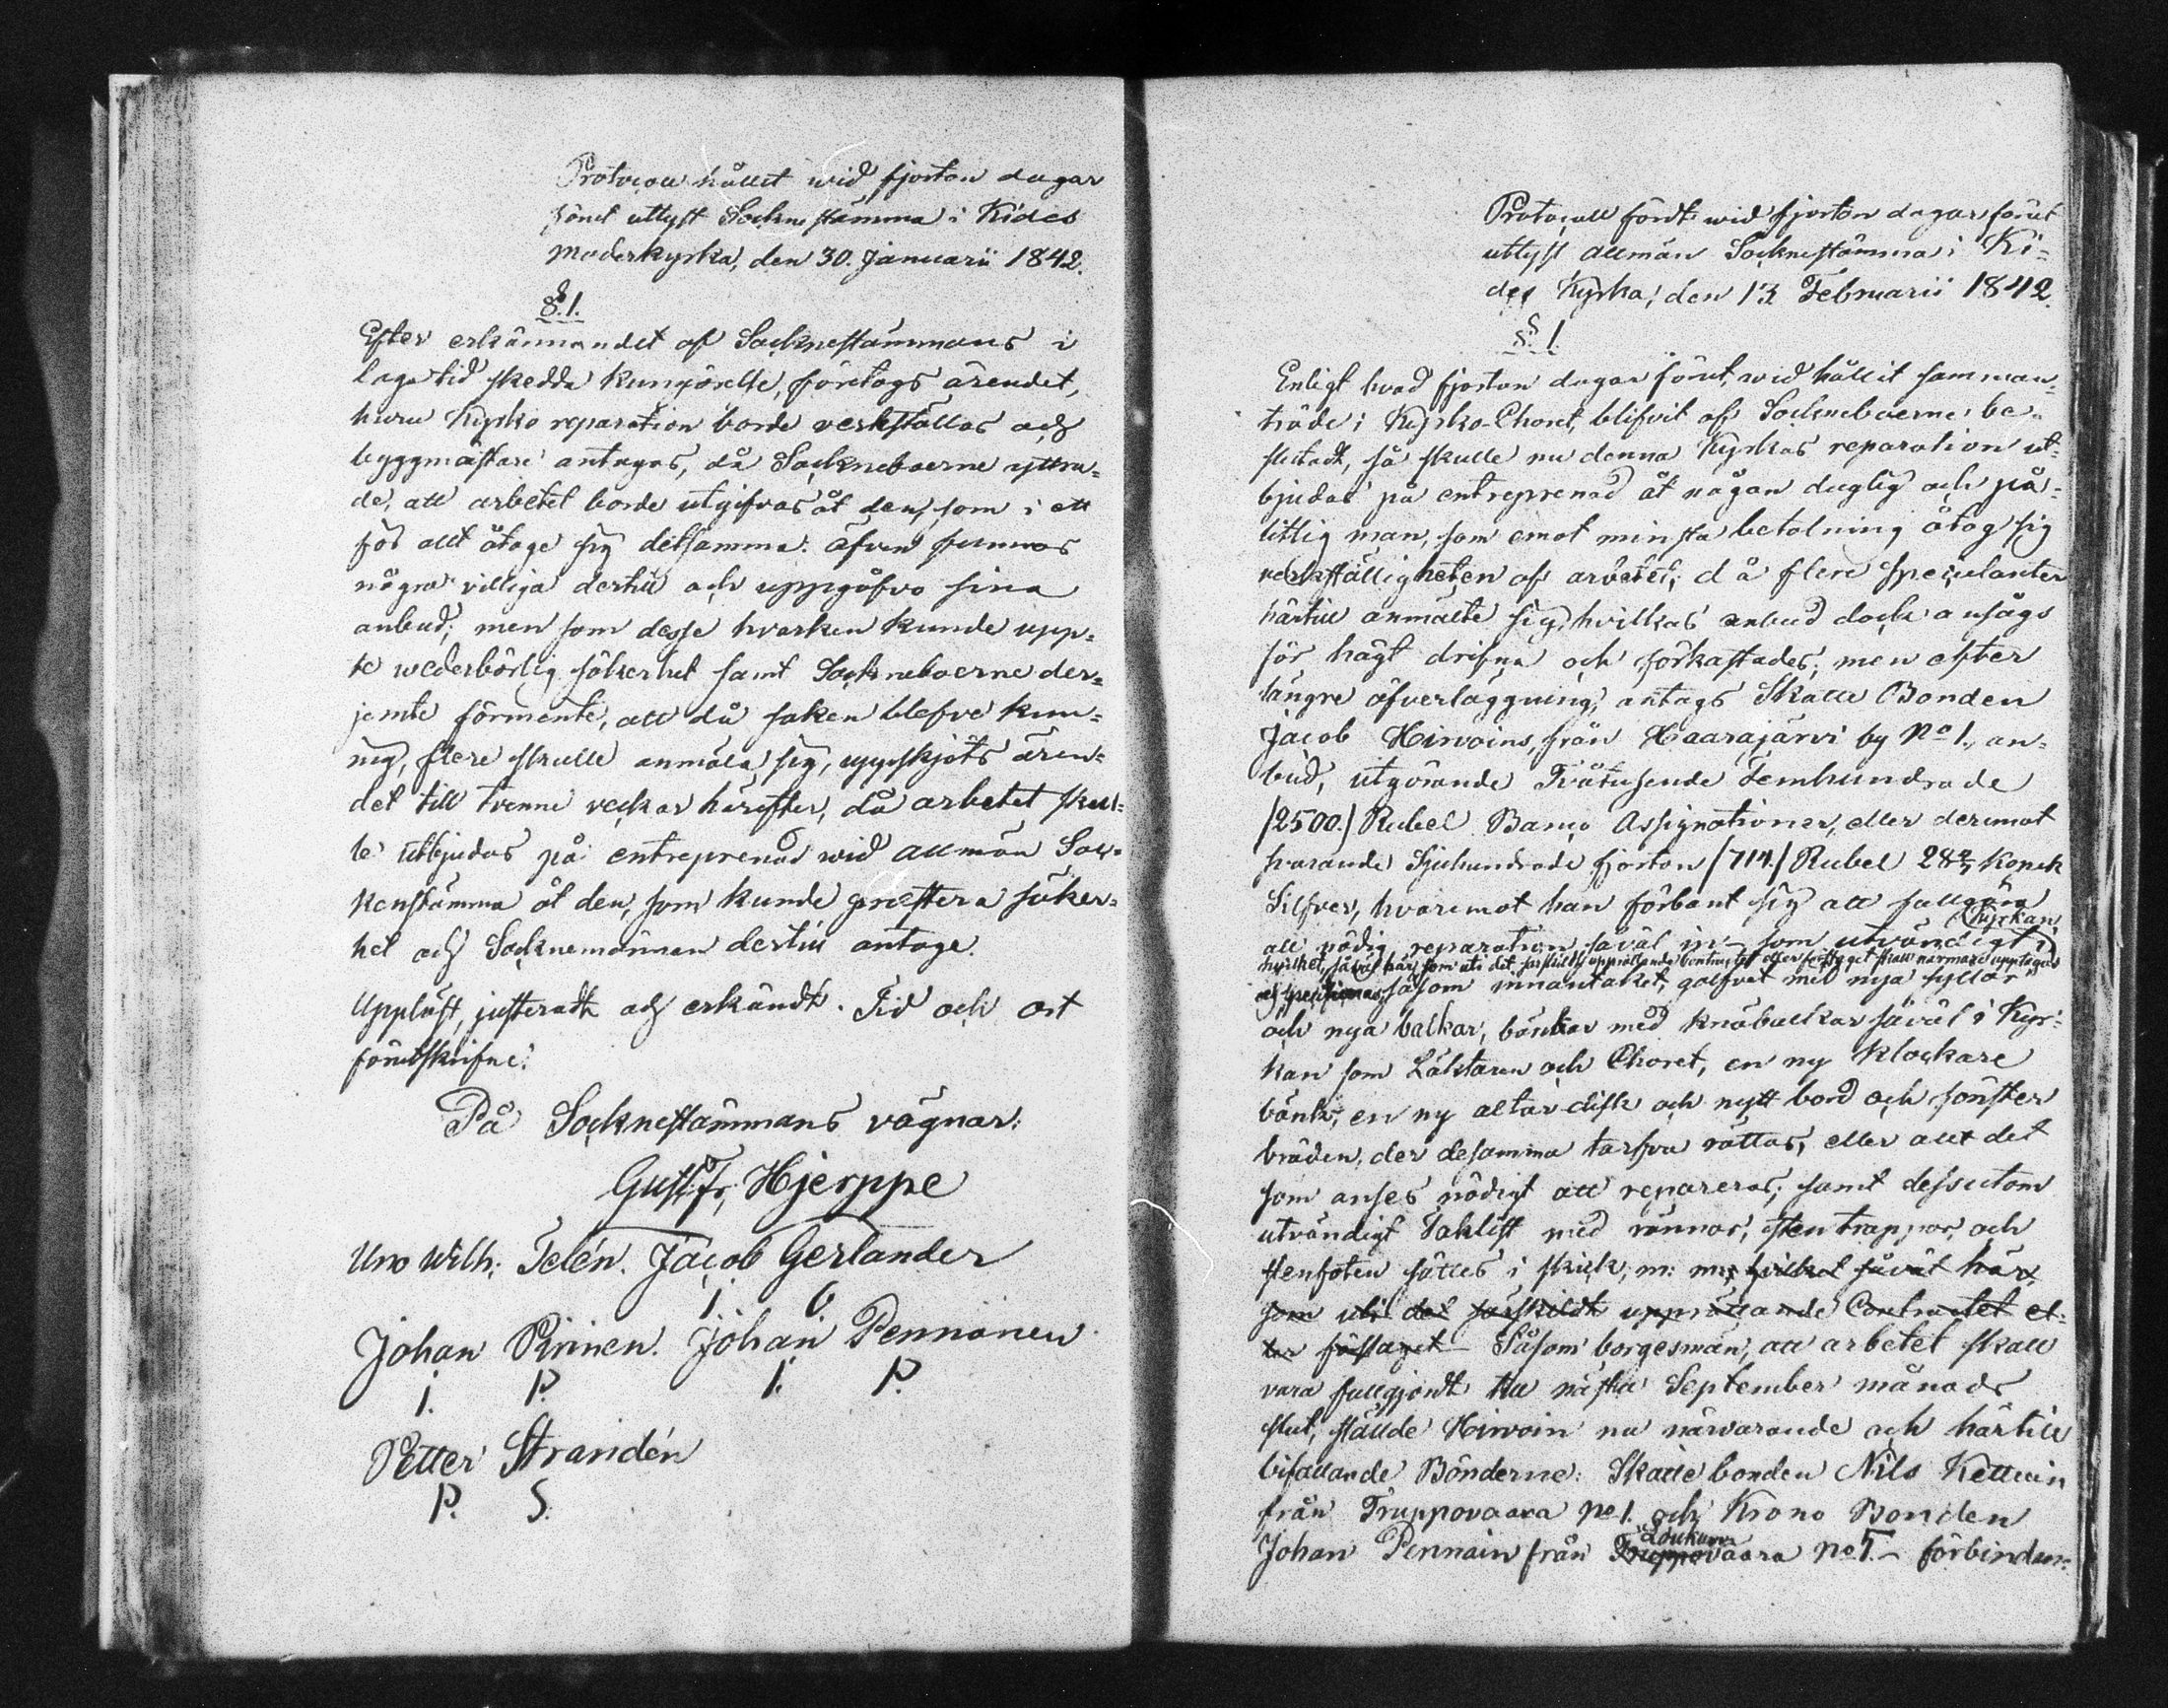 Protocoll hållit wid fjorton dagar
förut utlyst Sockne stämma i Kides
Moderkyrka, den 30. Januarii 1842.
§. 1.
Efter erkännandet af Socknestämmans i
laga tid skedda kungörelse, företogs ärendet,
huru Kyrko reparation borde verkställas och
byggmästare antagas, då Sockneboerne yttra-
de, att arbetet borde utgifvas åt den, som i ett
för allt åtoge sig detsamma. äfven funnos
några villiga dertill och uppgåfvo sina
anbud; men som desse hvarken kunde upp-
te wederbörlig säkerhet samt Socknboerne der-
jemte förmente, att då saken blefve kun-
nig, flere skulle anmäla sig, uppskjöts ären-
det till tvenne veckor härefter, då arbetet skul-
le utbjudas på entreprenad wid allmän Soc-
kenstämma åt den, som kunde præstera säker-
het och Socknemännen dertill antage.
Uppläst, justeradt och erkändt. Tid och ort
förutskrifne.
På Socknestämmans vägnar:
Gust. Fr. Hjerppe
Uno Wilh: Telén. Jacob Gerlander
J. G.
Johan Pirinen. Johan Pennanen
I. P. I. P.
Petter Strandén
P. S.
Protocoll fördt wid fjorton dagar förut
utlyst allmän Socknestämma i Ki-
des Kyrka, den 13 Februarii 1842.
§. 1.
Enligt hvad fjorton dagar förut, wid hållit samman-
träde i Kyrko-Choret, blifvit af Socknboerne be-
slutadt, så skulle nu denna Kyrkas reparation ut-
bjudas på entreprenad åt någon duglig och på-
litlig man, som emot minsta betalning åtog sig
verkställigheten af arbetet; då flere speculanter
härtill anmälte sig, hvilkas anbud dock ansågs
för högt drifna och förkastades; men efter
längre öfverläggning, antogs Skatte Bonden
Jacob Hirvoins, från Haarajärvi by No 1., an-
bud, utgörande Tvåtusende Femhundrade
/2500./ Rubel Banco Assignationer, eller deremot
svarande Sjuhundrade fjorton /714./ Rubel 28 4/7 Kopek
Silfver, hvaremot han förbant sig att fullgöra
all nödig reparation såväl in- som utvändigt i Kyrkan,
hvilket, såväl här, som uti det särskildt upprättande Contractet eller förslaget skall närmare upptagas
och specificeras, såsom innantaket, golfvet med nya syllar
och nya balkar, bänkar med knäballkar såväl i Kyr-
kan som Läktaren och Choret, en ny klockare
bänk, en ny altar disk och nytt bord och fönster
bräden, der desamma tarfva rättas, eller allt det
som anses nödigt att repareras, samt dessutom
utvändigt Taklist med rännor, stentrappor, och
stenfoten sättes i skick, m: m: hvilket såväl här
som uti det särskildt upprättande Contractet el-
ler förslaget Såsom borgesmän, att arbetet skall
vara fullgjordt till nästa September månads
slut, ställde Hirvoin nu närvarande och härtill
bifallande Bönderne: Skattebonden Nils Kettuin
från Truppovaara No 1. och Krono Bonden
Johan Pennain från Truppovaara No 5. – förbindan-